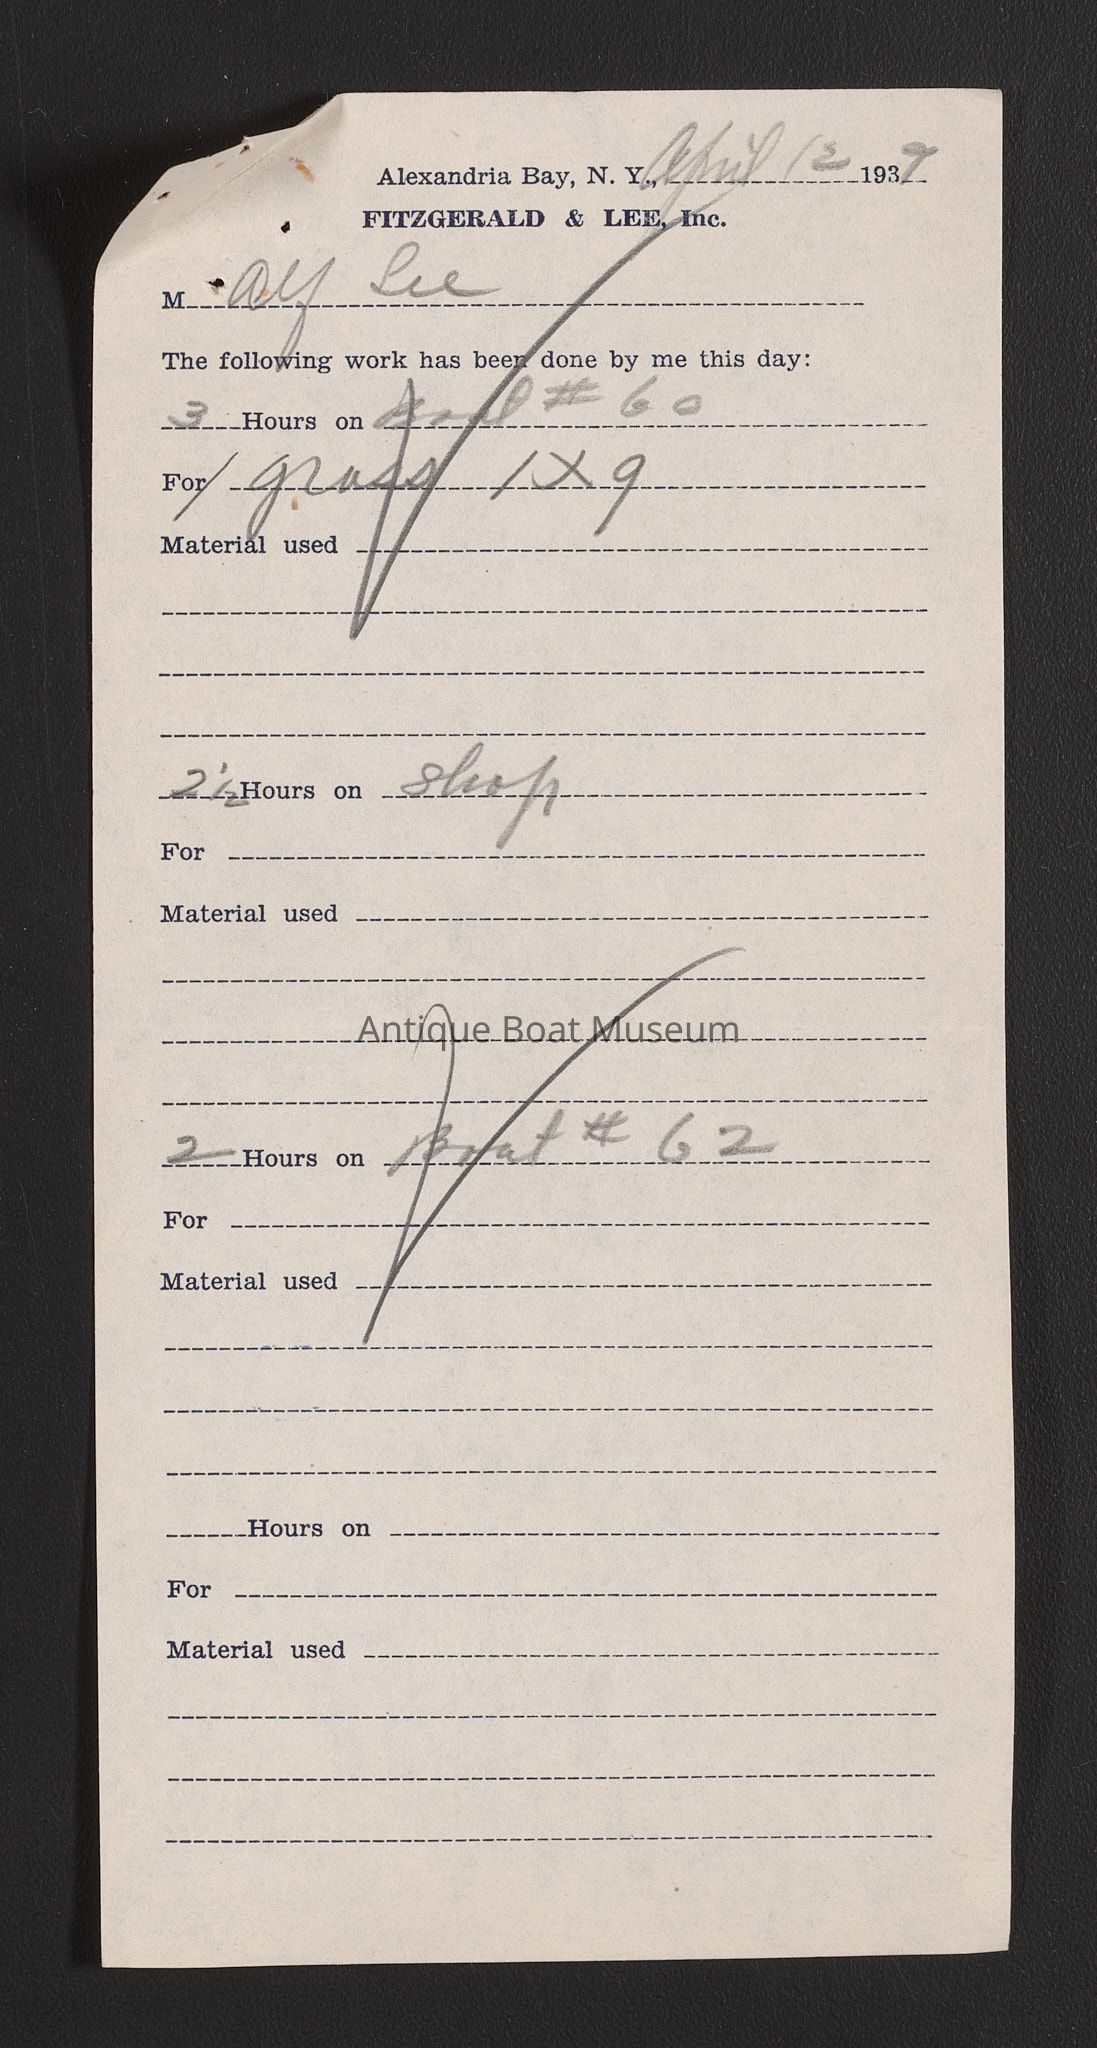 Alexandria Bay, N. Y., April 12 1939
FITZGERALD & LEE, Inc.
M Alf Lee
The following work has been done by me this day:
3 Hours on Boat # 60
For 1 gross 1 X 9
Material used
2 1/2 Hours on Shop
For
Material used
Antique Boat Museum
2 Hours on Boat # 62
For
Material used
Hours on
For
Material used